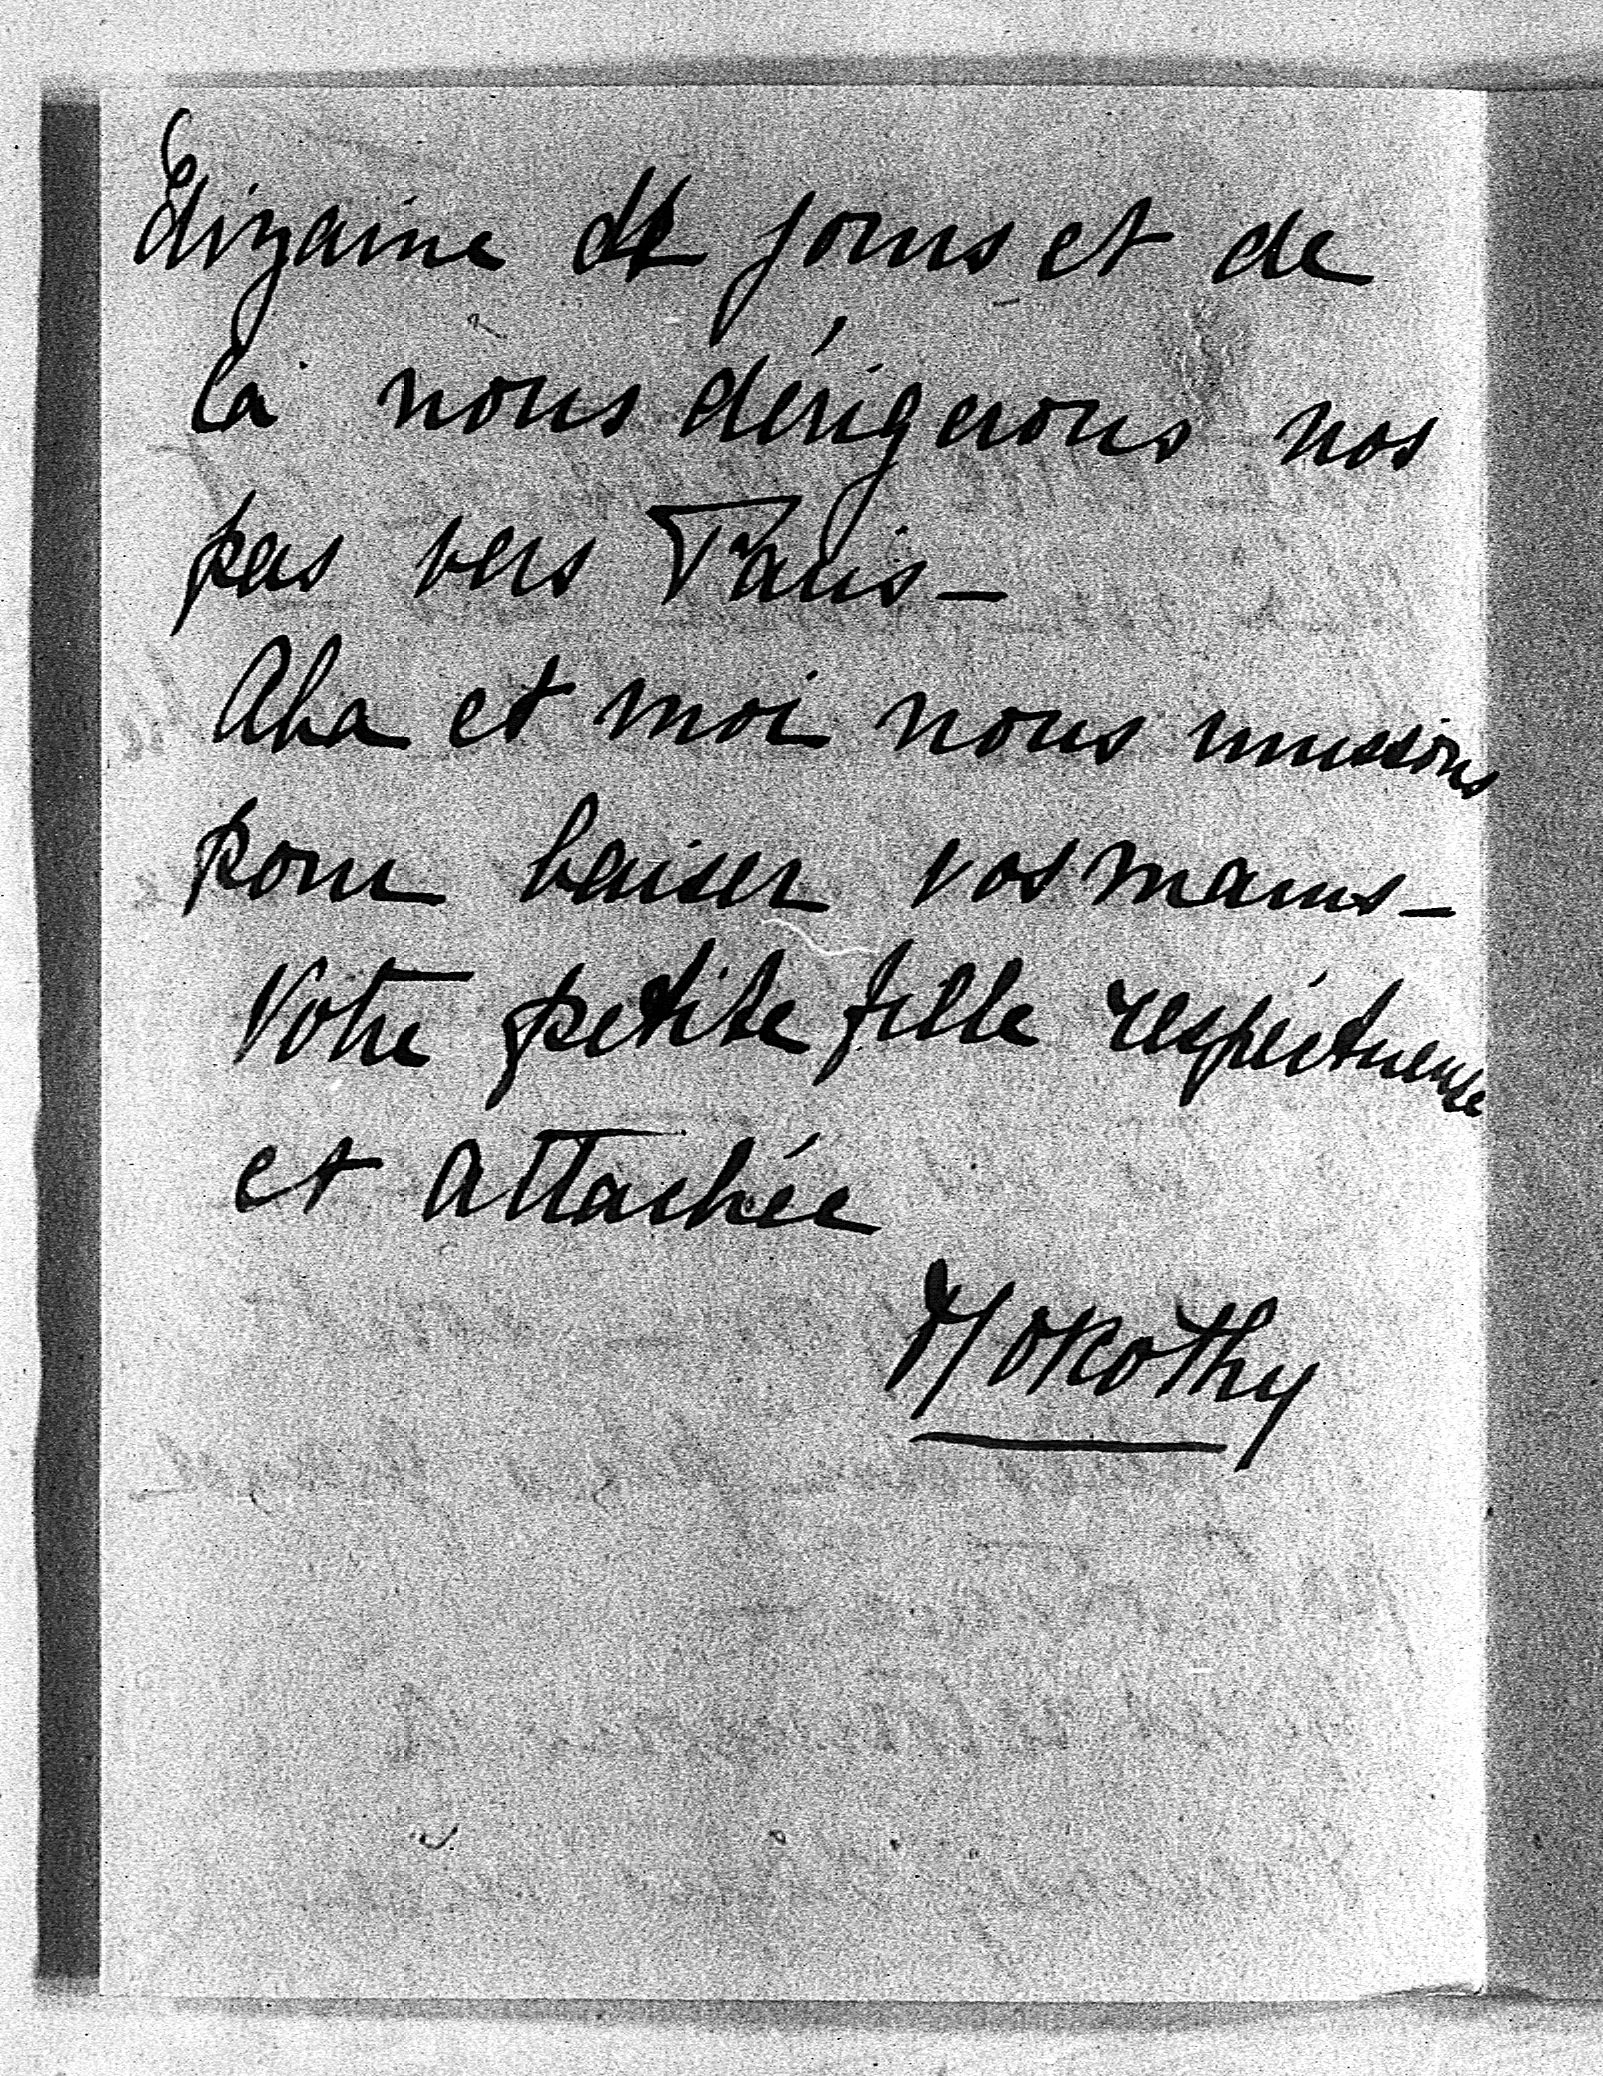 dizaine de jours et de
là nous dérigerons nos
pas vers Paris —
Aba et moi nous unissons
pour baiser vos mains —
Votre petite fille respéctueuse
et attachée
Mokothy